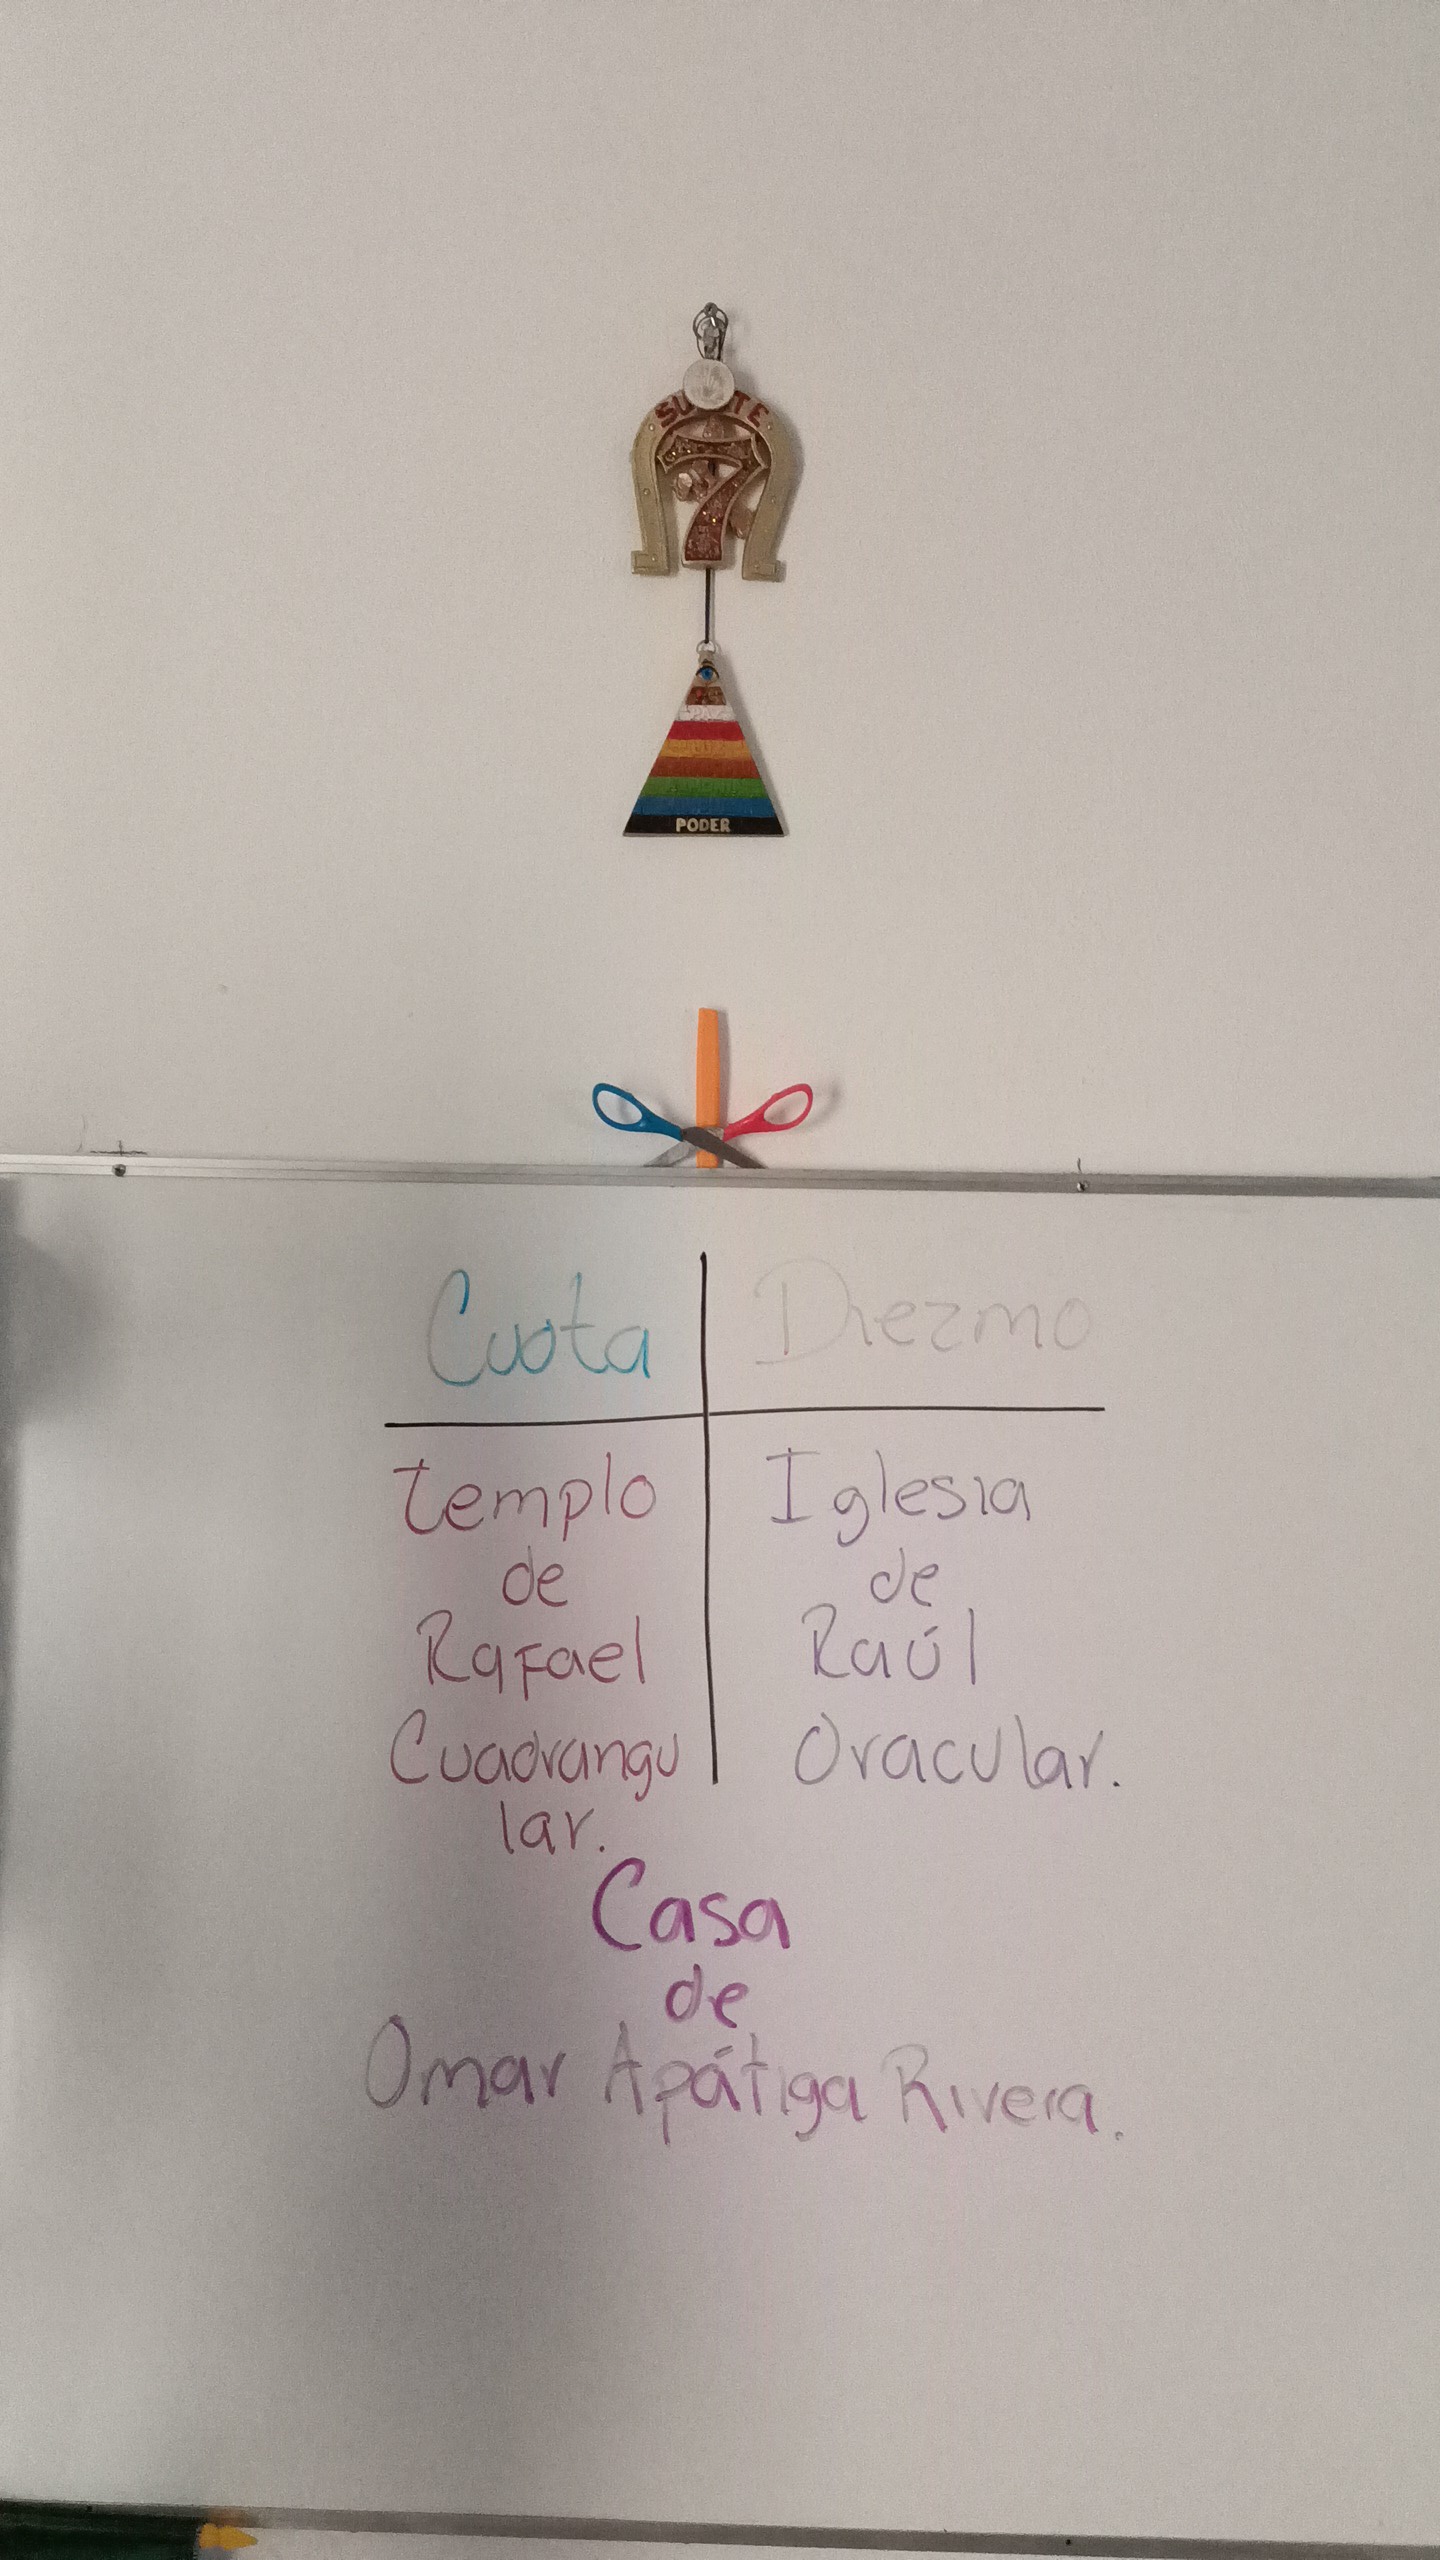 7
PAZ
PODER
Cuota
Diezmo
Templo
de
Rafael
Cuadrangu
lar.
Iglesia
de
Raúl
Oracular.
Casa
de
Omar Apátiga Rivera.